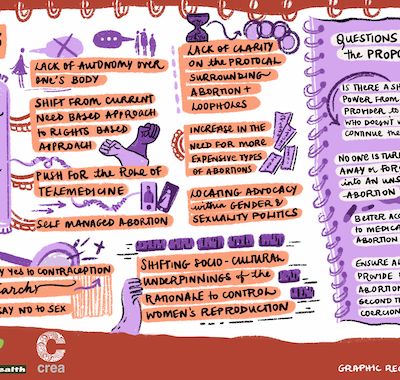 LACK OF AUTONOMY OVER
ONE'S BODY
SHIFT FROM CURRENT
NEED BASED APPROACH
to RIGHTS BASED
APPROACH
PUSH FOR the ROLE OF
TELEMEDICINE
SELF MANAGED ABORTION
YES to CONTRACEPTION
archy
SAY NO to SEX
LACK OF CLARITY
ON the PROTOCAL
SURROUNDING
ABORTION +
LOOPHOLES
INCREASE IN the
NEED FOR MORE
EXPENSIVE TYPES
OF ABORTIONS
LOCATING ADVOCACY
within GENDER &
SEXUALITY POLITICS
SHIFTING SOCIO-CULTURAL
UNDERPINNINGS of the
RATIONALE to CONTROL
WOMEN'S REPRODUCTION
QUESTIONS
the PROPO
IS THERE A SH
POWER FROM
PROVIDER to
WHO DOESN'T W
CONTINUE the
NO ONE IS TUR
AWAY or FOR
into AN UNS
ABORTION
BETTER ACC
to MEDICA
ABORTION
ENSURE AL
PROVIDE
ABORTION
SECOND T
COERCION
ealth
crea
GRAPHIC REC